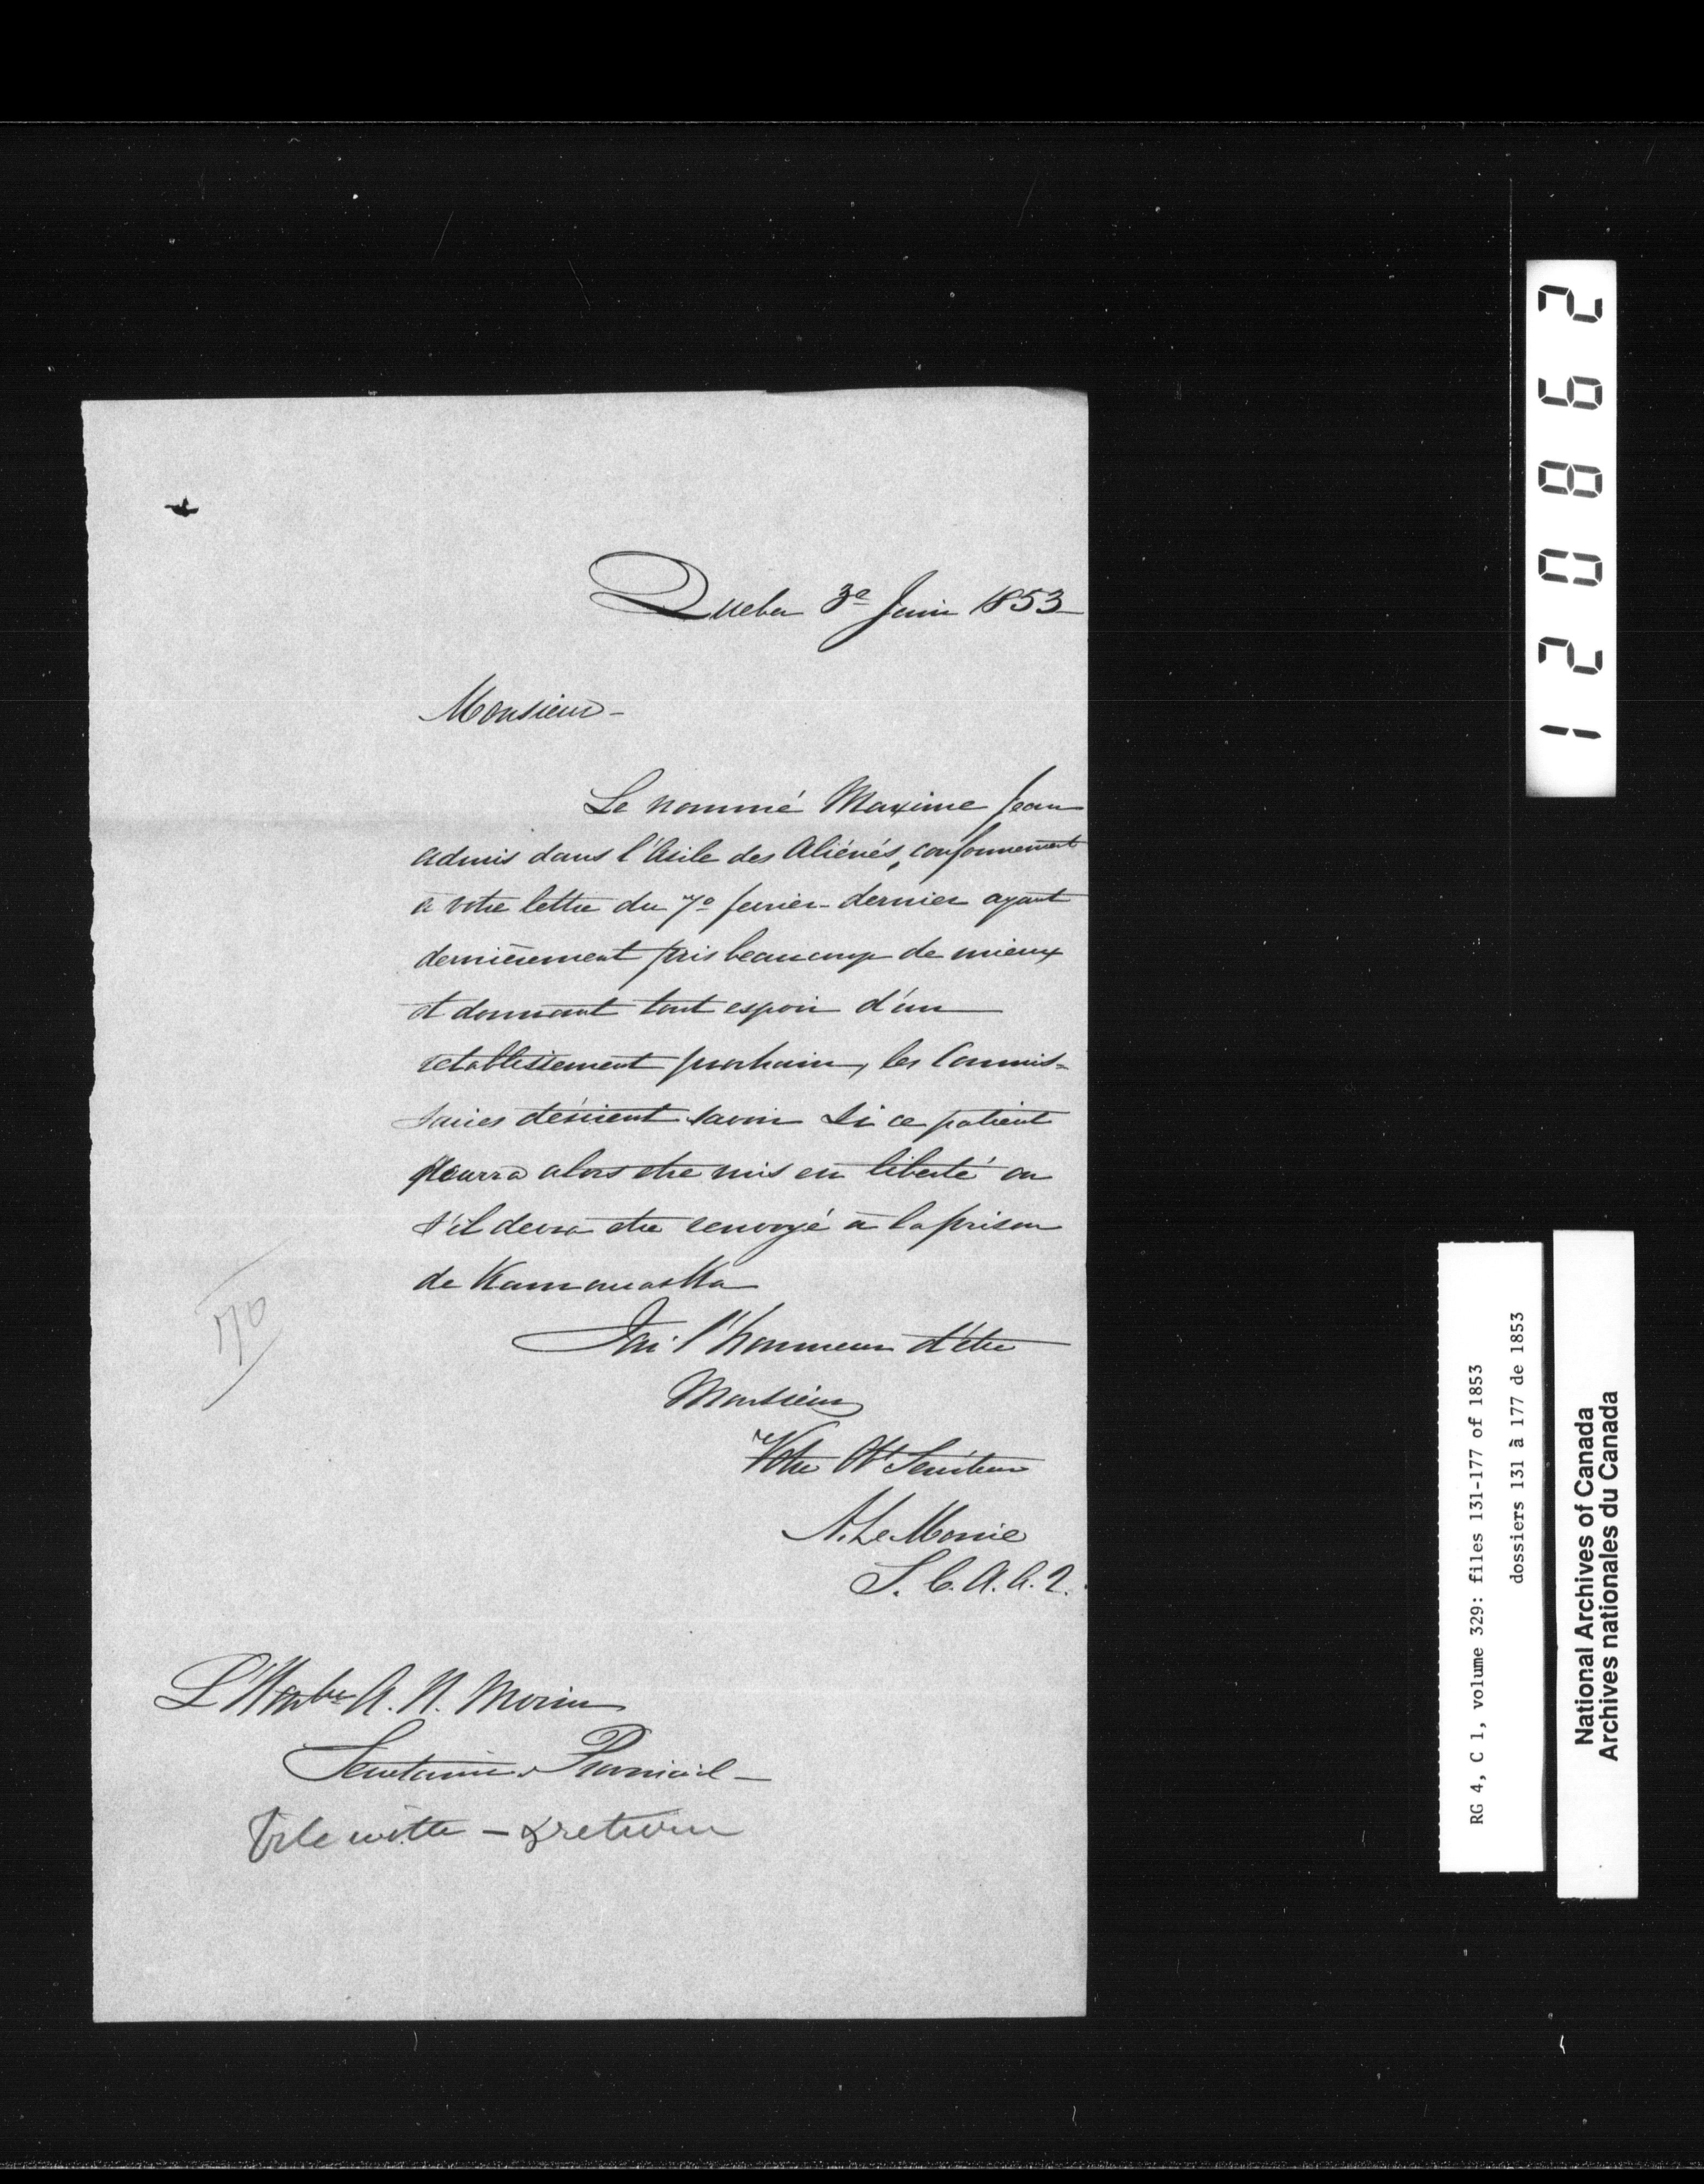 Quebec 3e Juin 1853
Monsieur -
Le nommé Maxime Jean
admis dans l'Asile des Aliénés, conformement
à votre lettre du 7e fevrier dernier ayant
dernièrement pris beaucoup de mieux
et donnant tout espoir d'un
retablissement prochain, les Commis=
saires désirent savoir Si ce patient
pourra alors etre mis en liberté ou
s'il devra etre renvoyé à la prison
de Kamouraska
J'ai l'honneur d'être
Monsieur
Votre Ob Serviteur
A. Le Moine
S. C. A. A. Q.
L'Honble A. N. Morin
Secretaire Provincial -
File with - & return
170
120862
RG 4, C 1, volume 329: files 131-177 of 1853
dossiers 131 à 177 de 1853
National Archives of Canada
Archives nationales du Canada